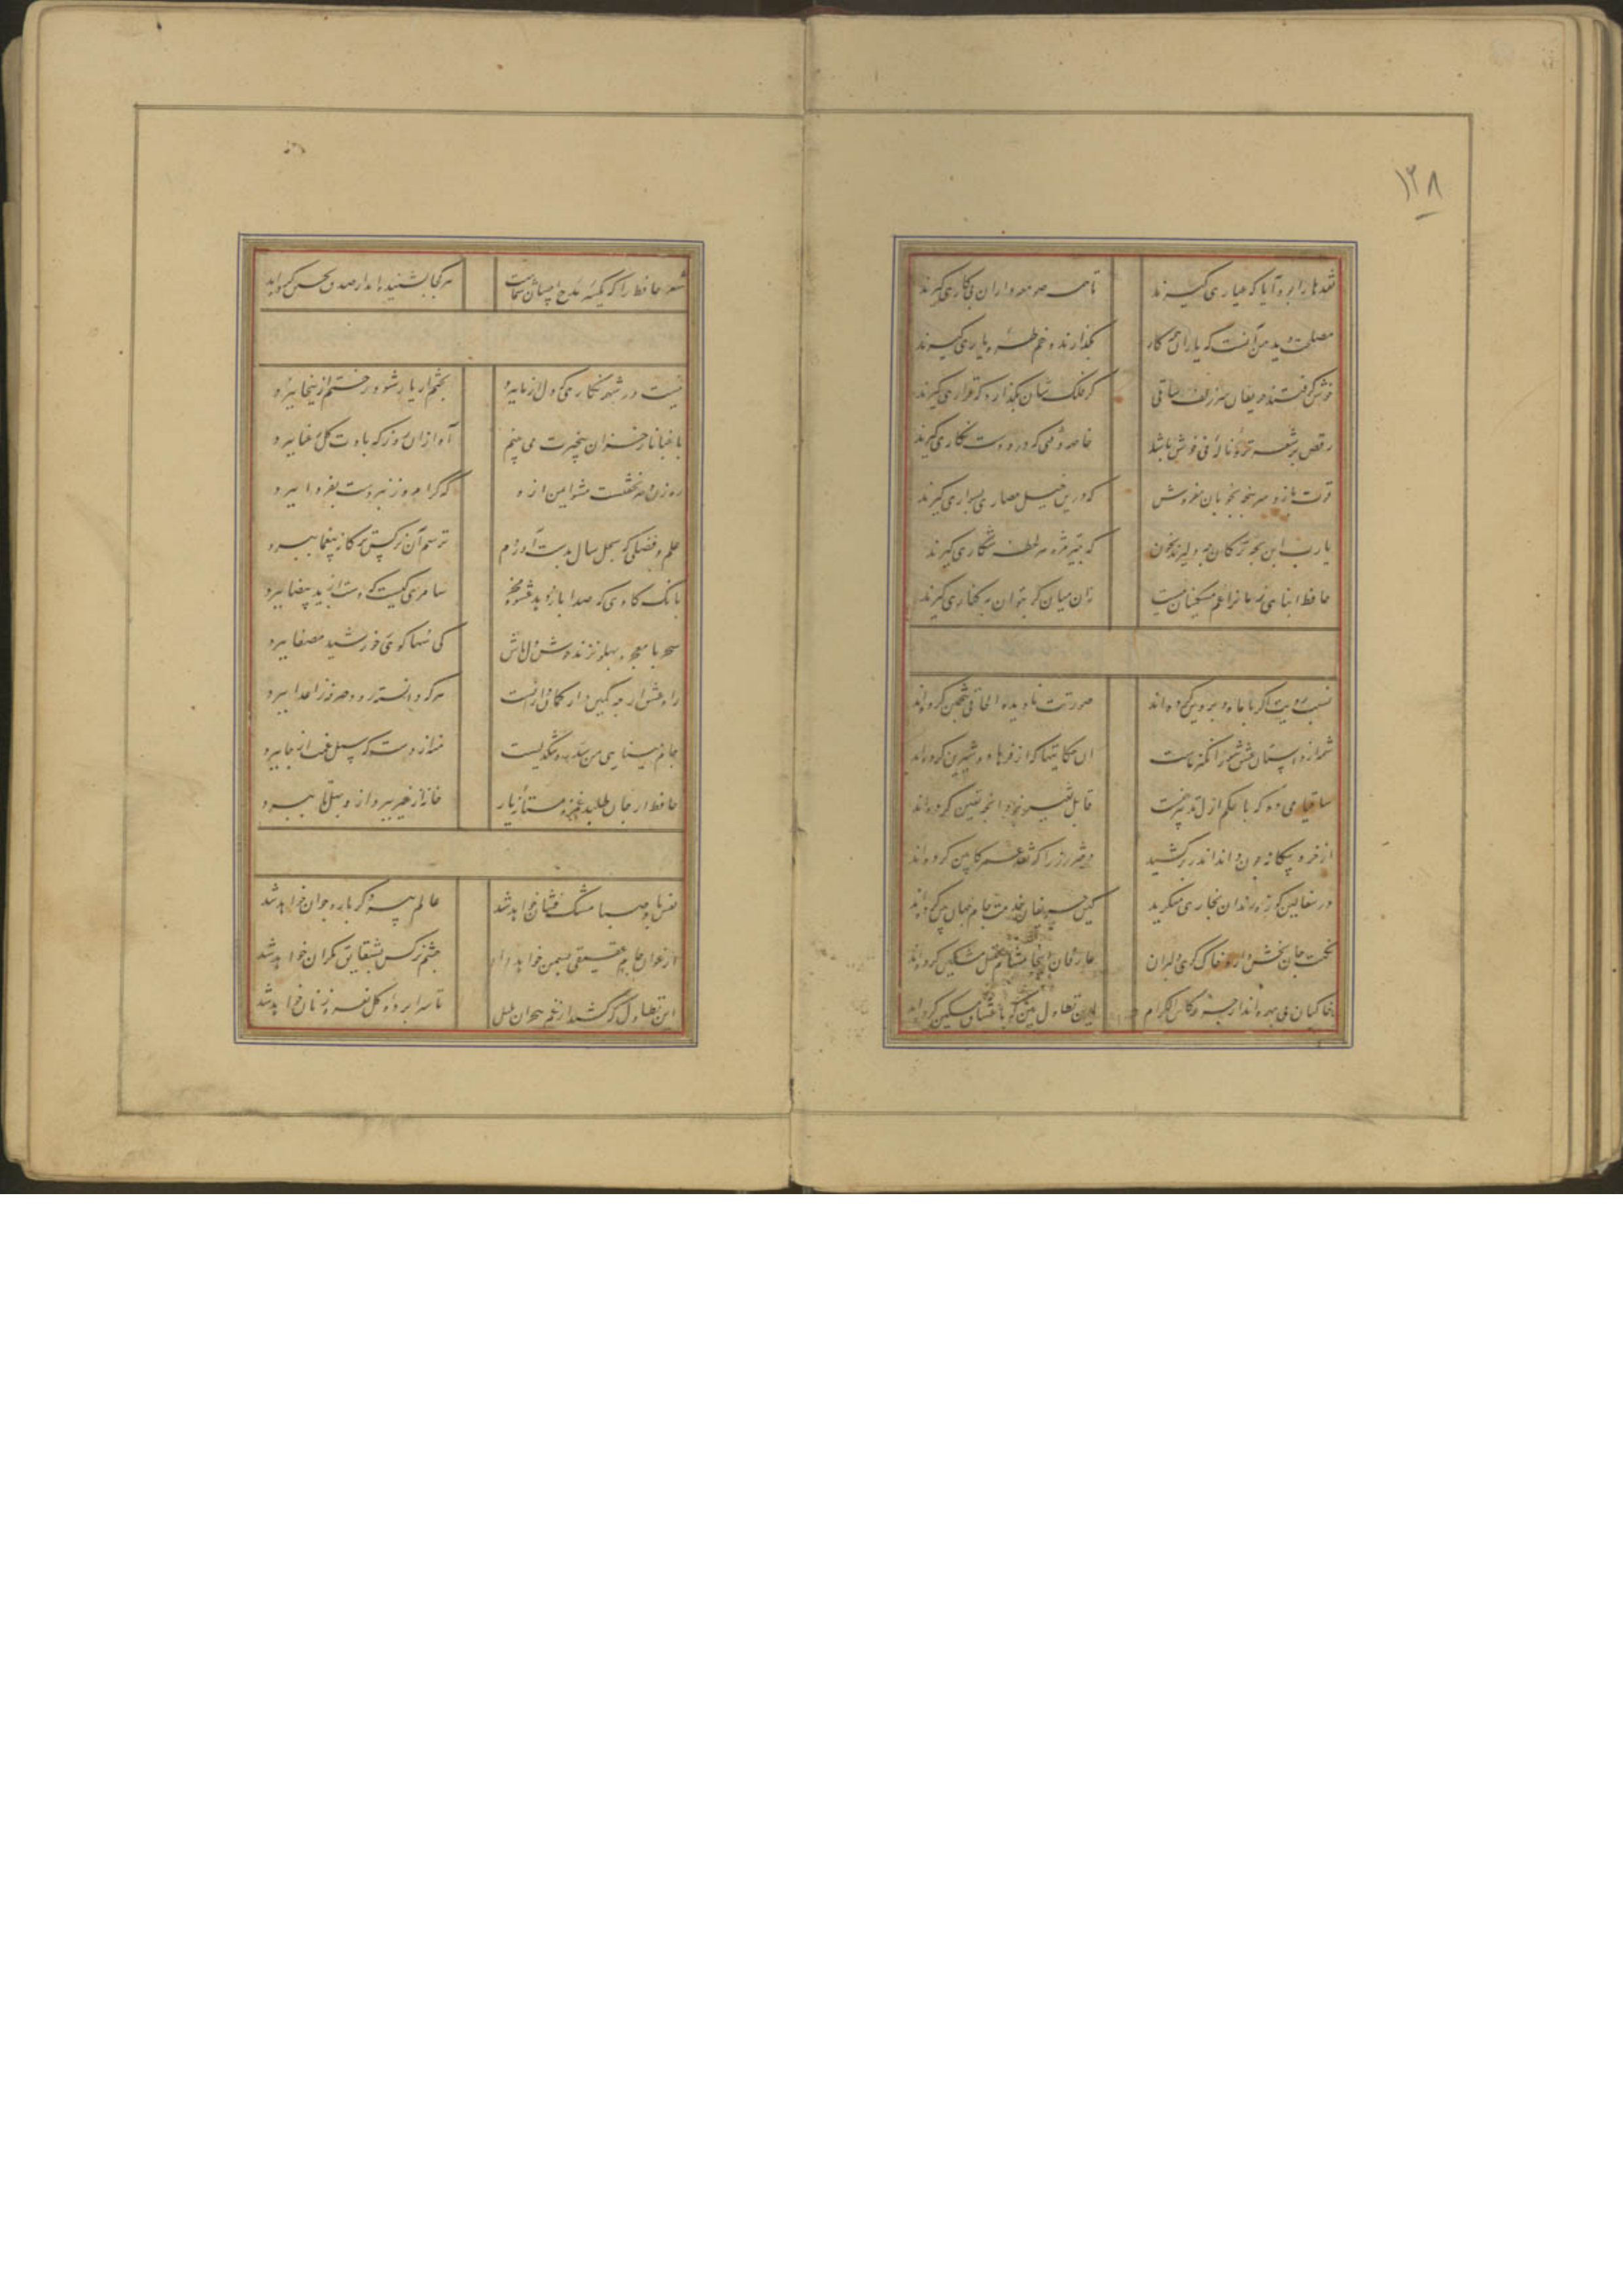 ۱۳۸
نقدها را بود آیا که عیاری گیرند
تا همه صومعه داران پی کاری گیرند
مصلحت دید من آنست که یاران همه کار
بگذارند و خم طره یاری گیرند
خوش گرفتند حریفان سر زلف ساقی
گر فلکشان بگذارد که قراری گیرند
رقص بر شعر تر و ناله نی خوش باشد
خاصه رقصی که درو دست نگاری گیرند
قوت بازو پرهیز بخوبان مفروش
که درین خیل حصاری بسواری گیرند
یارب این بچه ترکان چه دلیرند بخون
که بتیر مژه هر لحظه شکاری گیرند
حافظ ابنای زمانرا غم مسکینان نیست
زان میان گر بتوان به که کناری گیرند
نسبت رویت اگر با ماه و پروین کرده‌اند
صورت نادیده اطلاقی بتخمین کرده‌اند
شمه از داستان عشق شورانگیز ماست
این حکایتها که از فرهاد و شیرین کرده‌اند
ساقیا می ده که با حکم ازل تدبیر نیست
قابل تغییر نبود آنچه تعیین کرده‌اند
از خرد بیگانه چون جان اندر بر کشید
دختر رز را که نقد عقل کابین کرده‌اند
در سفالین کوزه رندان بخاری منگرید
کین حریفان خدمت جام جهان بین کرده‌اند
نکهت جان بخش دارد خاک کوی دلبران
عارفان آنجا مشام عقل مشکین کرده‌اند
خاکیان بی بهره‌اند از جرعه کاس الکرام
این تطاول بین که با عشاق مسکین کرده‌اند
شعر حافظ را که یکسر مدح احسان شماست
هر کجا بشنیده‌اند از صدق تحسین کرده‌اند
نیست در شهر نگاری که دل از ما ببرد
بختم ار یار شود رختم ازینجا ببرد
باغبانا ز خزان بیخبرت می بینم
آه ازان روز که بادت گل رعنا ببرد
رهزن دهر نخفتست مشو ایمن ازو
که گر امروز نبردست بفردا ببرد
علم و فضلی که بچل سال بدست آوردم
ترسم آن نرگس ترکانه بیغما ببرد
بانگ گاوی که صدا باز دهد عشوه مخر
سامری کیست که دست از ید بیضا ببرد
سحر با معجزه پهلو نزند دل خوش دار
کی سها گوی ز خورشید مصفا ببرد
راه عشق ار چه کمین گاه کمان دارانست
هر که دانسته رود صرفه ز اعدا ببرد
جام مینایی می سد ره تنگدلیست
منه از دست که سیل غمت از جا ببرد
حافظ ار جان طلبد غمزه مستانه یار
خانه از غیر بپرداز و بهل تا ببرد
نفس باد صبا مشک فشان خواهد شد
عالم پیر دگر باره جوان خواهد شد
ارغوان جام عقیقی بسمن خواهد داد
چشم نرگس بشقایق نگران خواهد شد
این تطاول که کشید از غم هجران بلبل
تا سراپرده گل نعره زنان خواهد شد